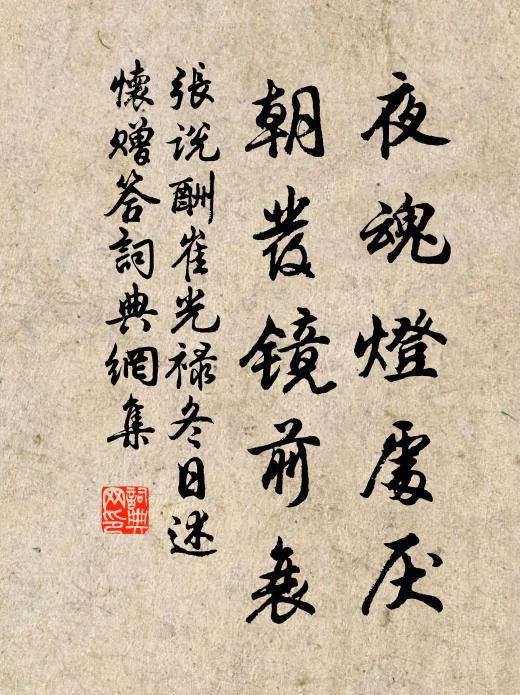 夜魂燈處厌
朝發鏡前衰
張説酬崔光禄冬日述
懷赠答詞典網集
詞典
网印